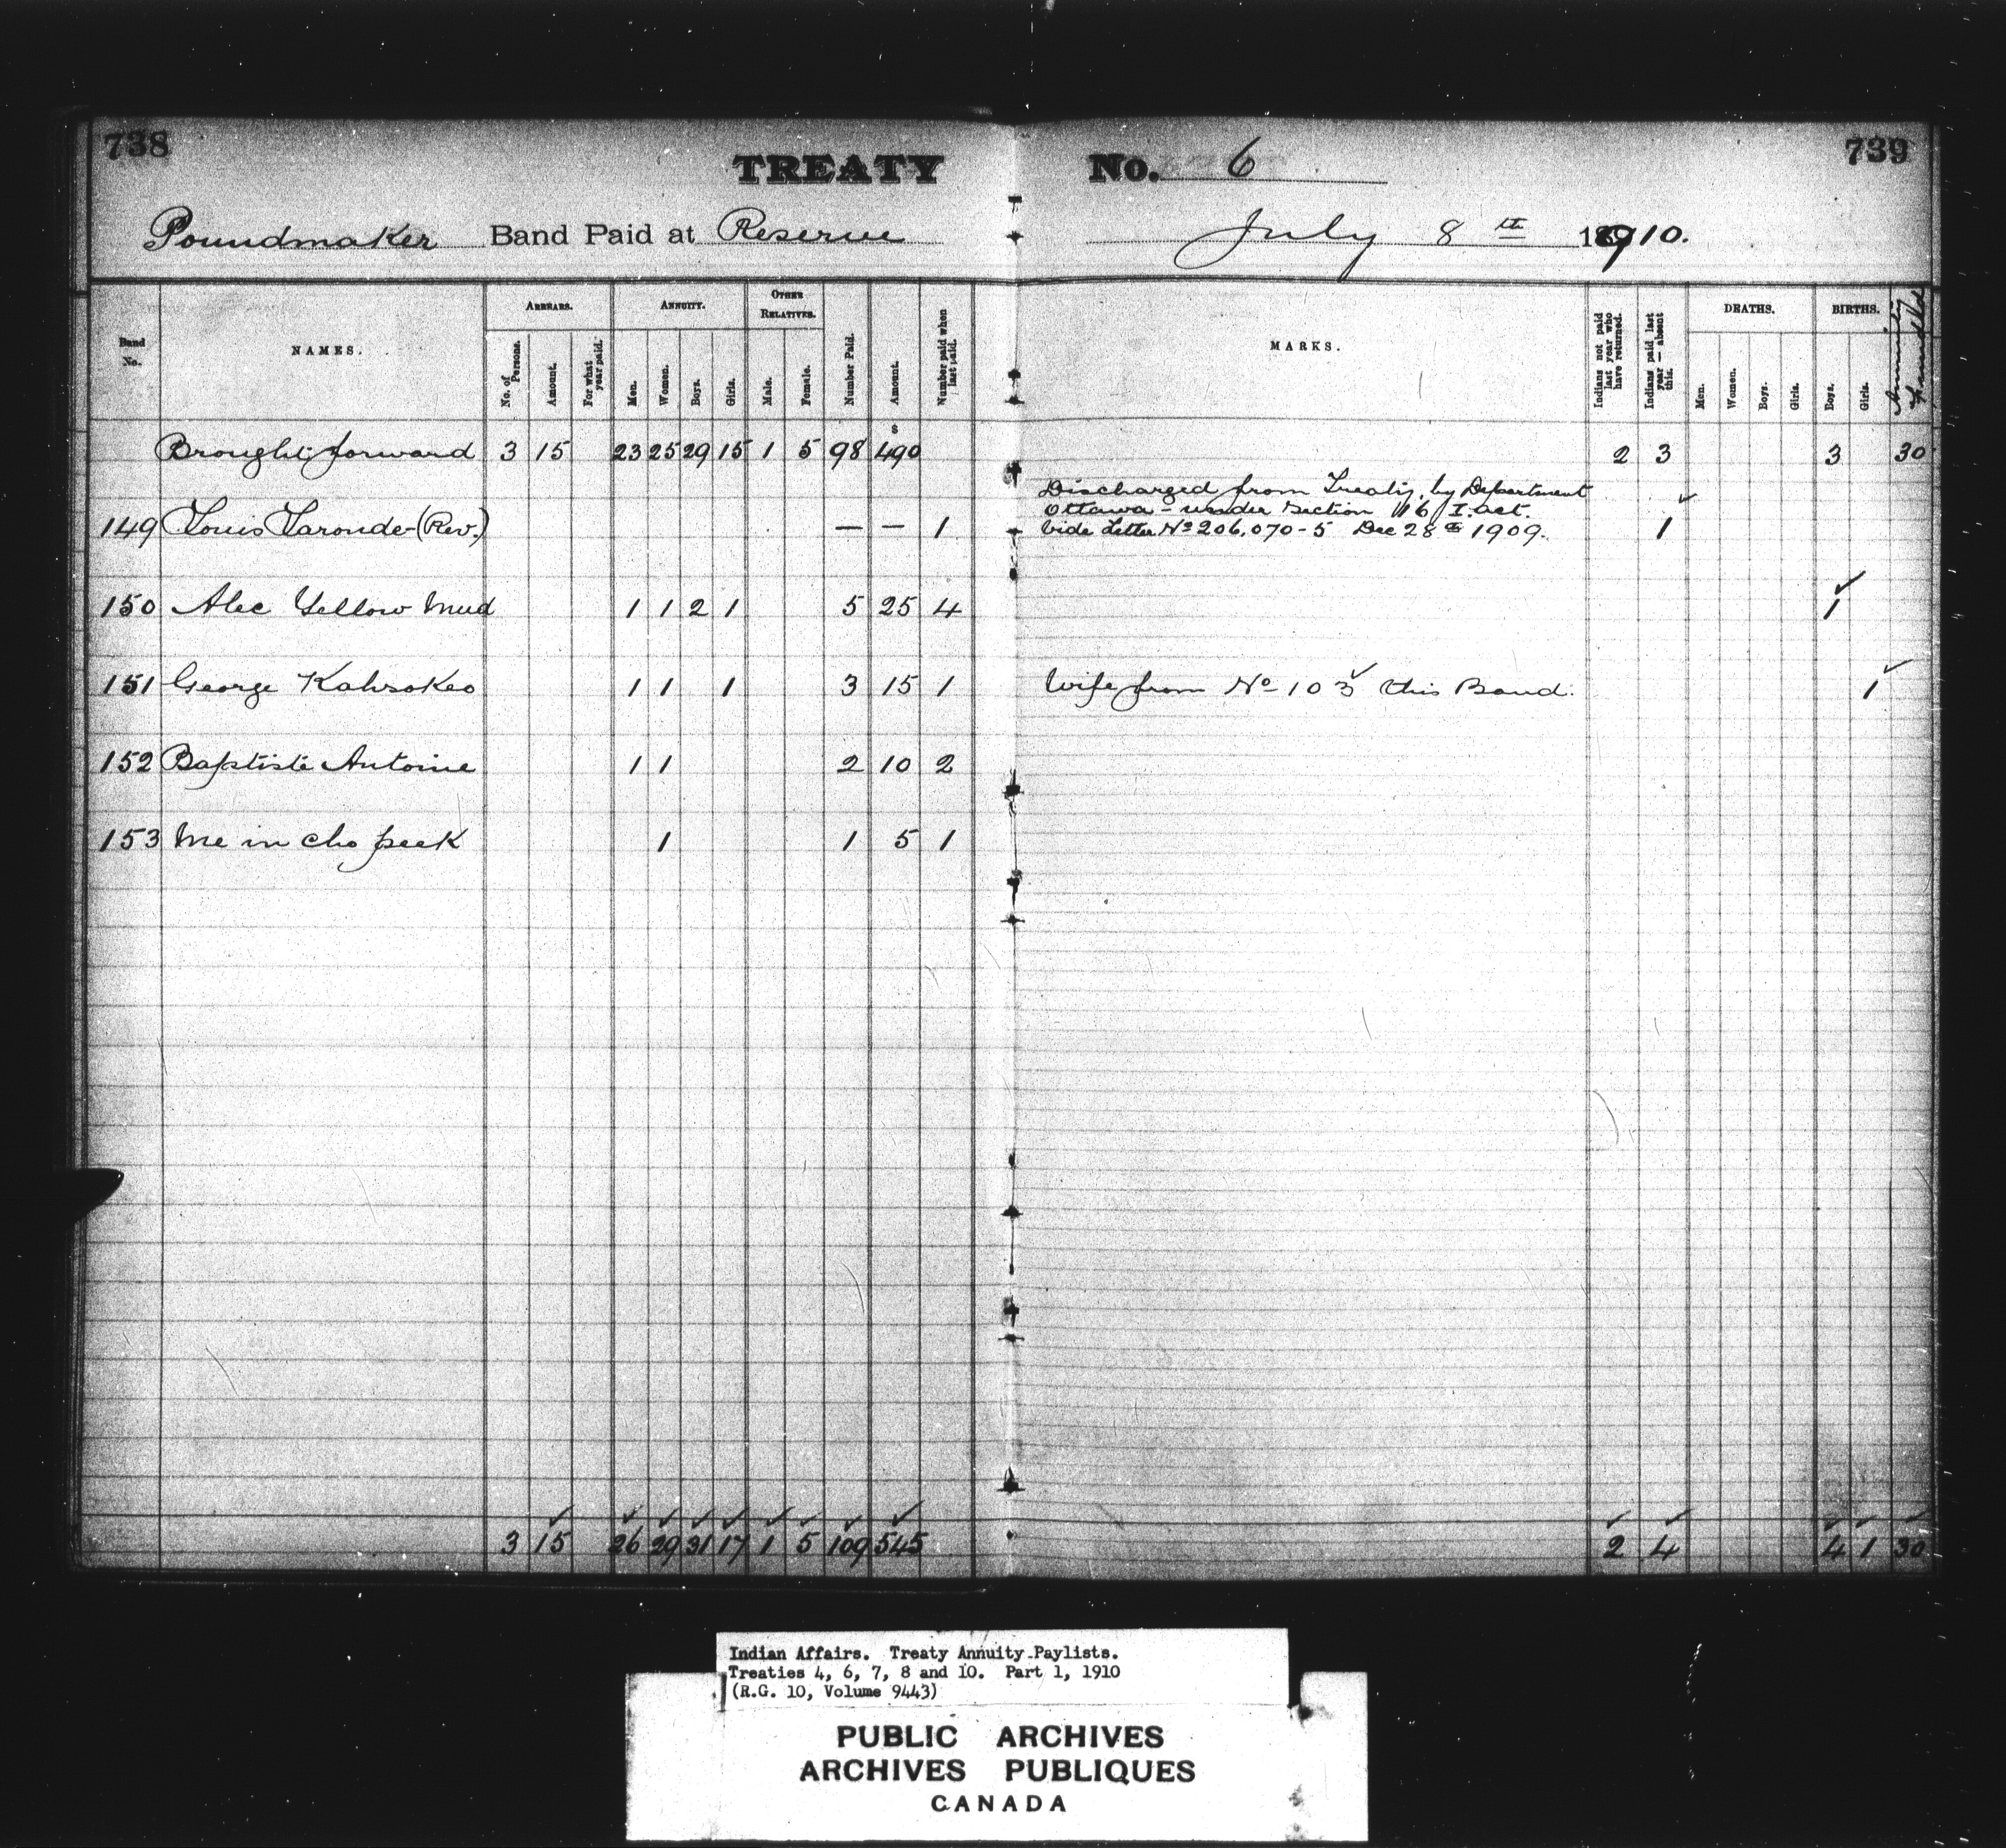 738
TREATY No. 6
739
Poundmaker Band Paid at Reserve July 8th 1910.
Band No.
NAMES.
ARREARS.
No. of Persons.
Amount.
For what year paid.
ANNUITY.
Men.
Women.
Boys.
Girls.
OTHER RELATIVES.
Male.
Female.
Number Paid.
Amount.
Number paid when last paid.
MARKS.
Indians not paid last year who have returned.
Indians paid last year — absent this.
DEATHS.
Men.
Women.
Boys.
Girls.
BIRTHS.
Boys.
Girls.
Annuity
$
Brought forward 3 15 23 25 29 15 1 5 98 490 2 3 3 30
Discharged from Treaty, by Department
Ottawa - under Section 16 I. act.
149 Louis Laronde (Rev.) — — 1 Vide Letter No 206,070-5 Dec 28th 1909. 1
150 Alec Yellow Mud 1 1 2 1 5 25 4 1
151 George Kahsokeo 1 1 1 3 15 1 Wife from No 103 this Band. 1
152 Baptiste Antoine 1 1 2 10 2
153 Me in cho peek 1 1 5 1
3 15 26 29 31 17 1 5 109 545 2 4 4 1 30
Indian Affairs. Treaty Annuity Paylists.
Treaties 4, 6, 7, 8 and 10. Part 1, 1910
(R.G. 10, Volume 9443)
PUBLIC ARCHIVES
ARCHIVES PUBLIQUES
CANADA